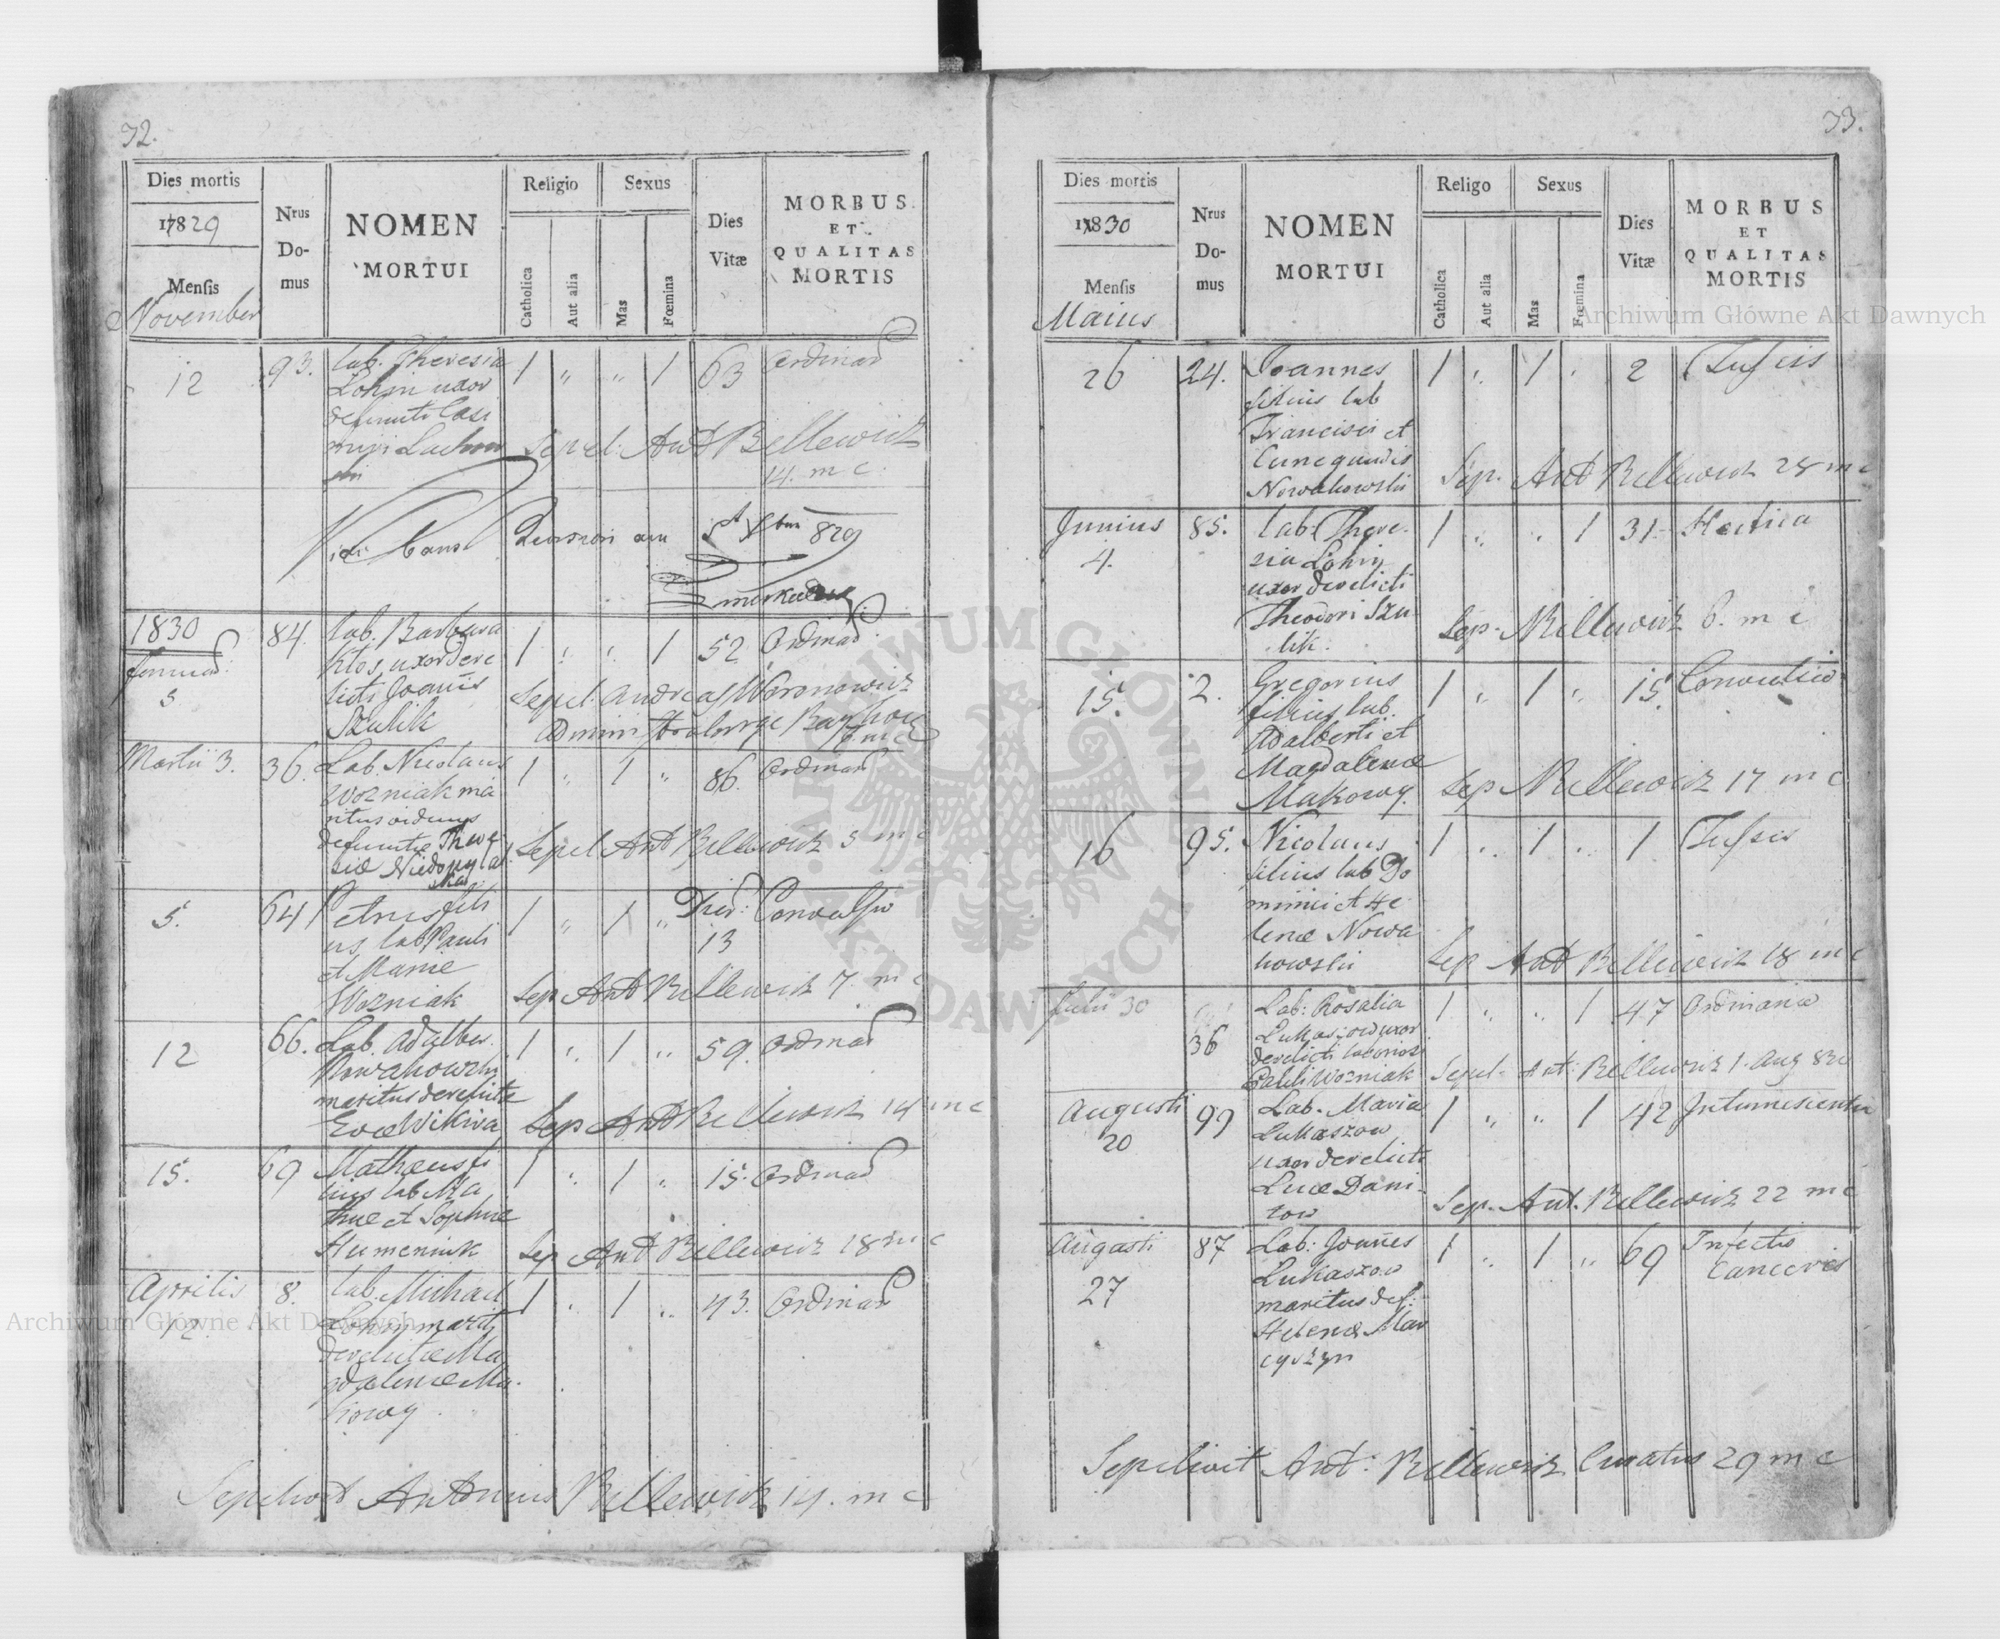 72.
Dies mortis
1829
Mensis
November
Nrus
Do-
mus
NOMEN
MORTUI
Religio
Catholica
Aut alia
Sexus
Mas
Fœmina
Dies
Vitæ
MORBUS
ET
QUALITAS
MORTIS
12
93.
Lab. Theresia
Lohin uxor
defuncti Casi
miri
1 „ „ 1 63 Ordinar
Sepel. Ant Bellewicz
14. m c.
829
1830
Januar:
3
84.
Lab. Barbara
Kłos, uxor dere
licti Joannis
Szulik
1 „ „ 1 52 Ordinar
Sepel. Andreas Woronowicz
Admini
Martii 3.
36.
Lab. Nicolaus
Wozniak ma
ritus
defunctæ There
siæ
1 „ 1 „ 86. Ordinar
Sepel Ant Bellewicz 5 m c
5.
64
Petrus fili
us lab Pauli
et Mariæ
Wozniak
1 „ 1 „ Dier: 13 Convulsio
Sep Ant Bellewicz 7. m c
12
66.
Lab. Adalber.
Nowakowski
maritus derelictæ
Evæ Wikira
1 „ 1 „ 59. Ordinar
Sep Ant Bellewicz 14 m c
15.
69
Mathæus fi
lius lab Ma
thæ et Sophiæ
Humeniuk
1 „ 1 „ 15. Ordinar
Sep Ant Bellewicz 18 m c
Aprilis
12.
8.
Lab. Michael
Lohin marit
derelictæ Ma
gdalenæ Ma.
kowy
1 „ 1 „ 43. Ordinar
Sepelivit Antonius Bellewicz 14. m c
73.
Dies mortis
1830
Mensis
Maius
Nrus
Do-
mus
NOMEN
MORTUI
Religo
Catholica
Aut alia
Sexus
Mas
Fœmina
Dies
Vitæ
MORBUS
ET
QUALITAS
MORTIS
26
24.
Joannes
filius lab
Francisci et
Cunegundis
Nowakowski
1 „ 1 „ 2 Tussis
Sep. Ant Bellewicz 28 m c
Junius
4.
85.
Lab: There-
sia Lohin
uxor derelicti
Theodori Szu
lik.
1 „ „ 1 31 Hectica
Sep. Bellewicz 6. m c
15.
2.
Gregorius
filius lab.
Adalberti et
Magdalenæ
Makowy.
1 „ 1 „ 15. Convulsio
Sep Bellewicz 17 m c
16
95.
Nicolaus
filius lab Do
minici et He
lenæ Nowa
kowski
1 „ 1 „ 1 Tussis
Sep Ant Bellewicz 18 m c
Julii 30
36
Lab: Rosalia
Lukaszow uxor
derelicti laboriosi
Pauli Wozniak
1 „ „ 1 47 Ordinaria
Sepel. Ant: Bellewicz 1. Aug 830
Augusti
20
99
Lab. Maria
Lukaszow
uxor derelicti
Lucæ Dani-
łow
1 „ „ 1 42 Intumescentia
Sep. Ant. Bellewicz 22 m c
Augusti
27
87
Lab: Joannes
Lukaszow
maritus def:
Helenæ Mar
cyszyn
1 „ 1 „ 69 Infectio
Canceris
Sepelivit Ant: Bellewicz Curatus 29 m c
Archiwum Główne Akt Dawnych
Archiwum Główne Akt Dawnych
ARCHIWUM GŁÓWNE AKT DAWNYCH